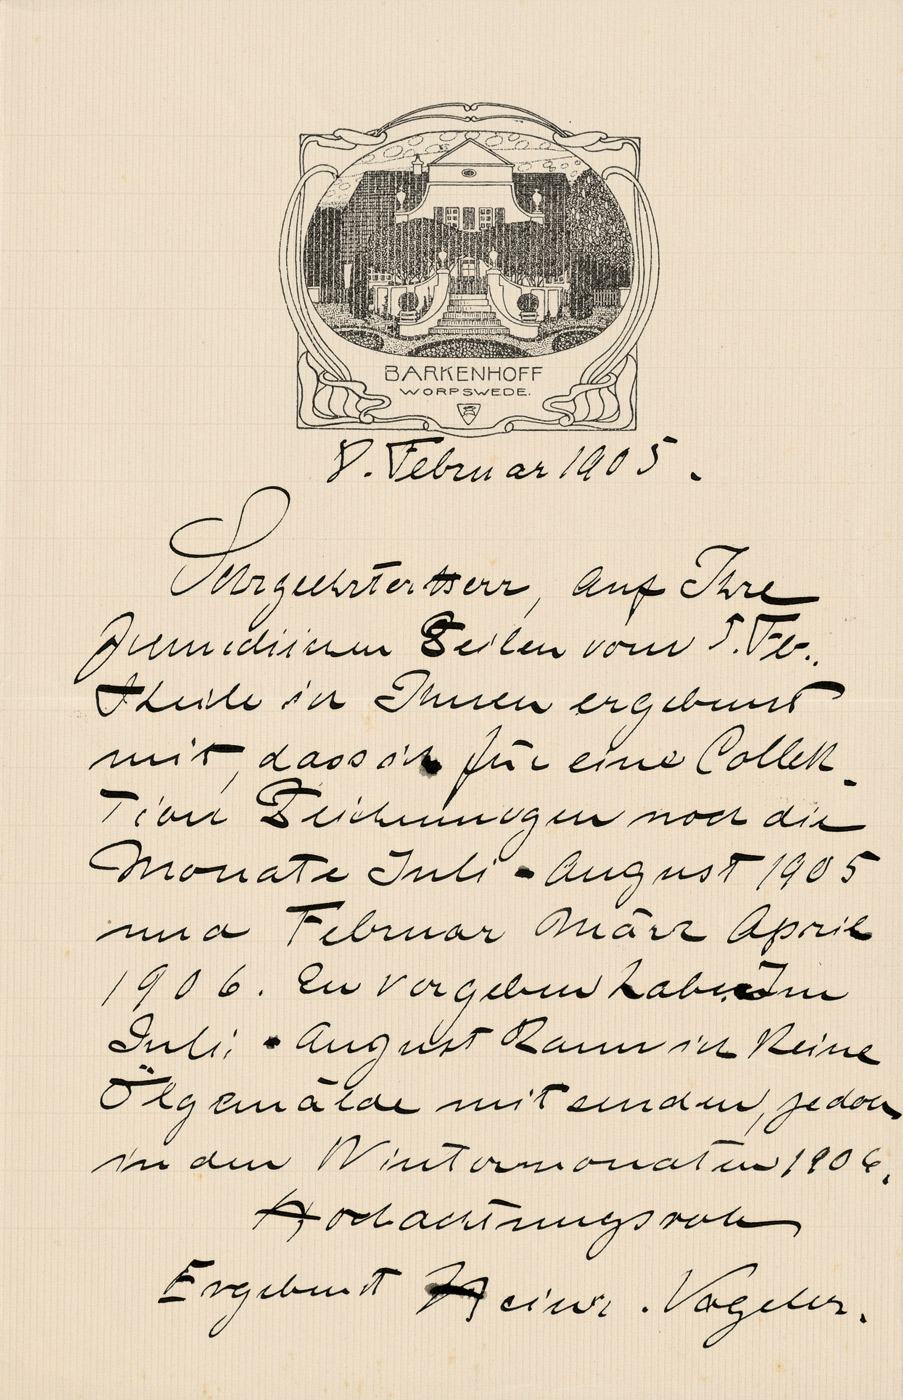 BARKENHOFF
WORPSWEDE.
8. Februar 1905.
Sehrgeehrter Herr, auf Ihre
freundlichen Zeilen vom 5. Feb.
theile ich Ihnen ergebenst
mit, dass ich für eine Collek-
tion Zeichnungen noch die
Monate Juli - August 1905
und Februar März April
1906. zu vergeben habe. Im
Juli - August kann ich keine
Ölgemälde mit senden, jedoch
in den Wintermonaten 1906.
Hochachtungsvoll
Ergebenst Heinr. Vogeler.